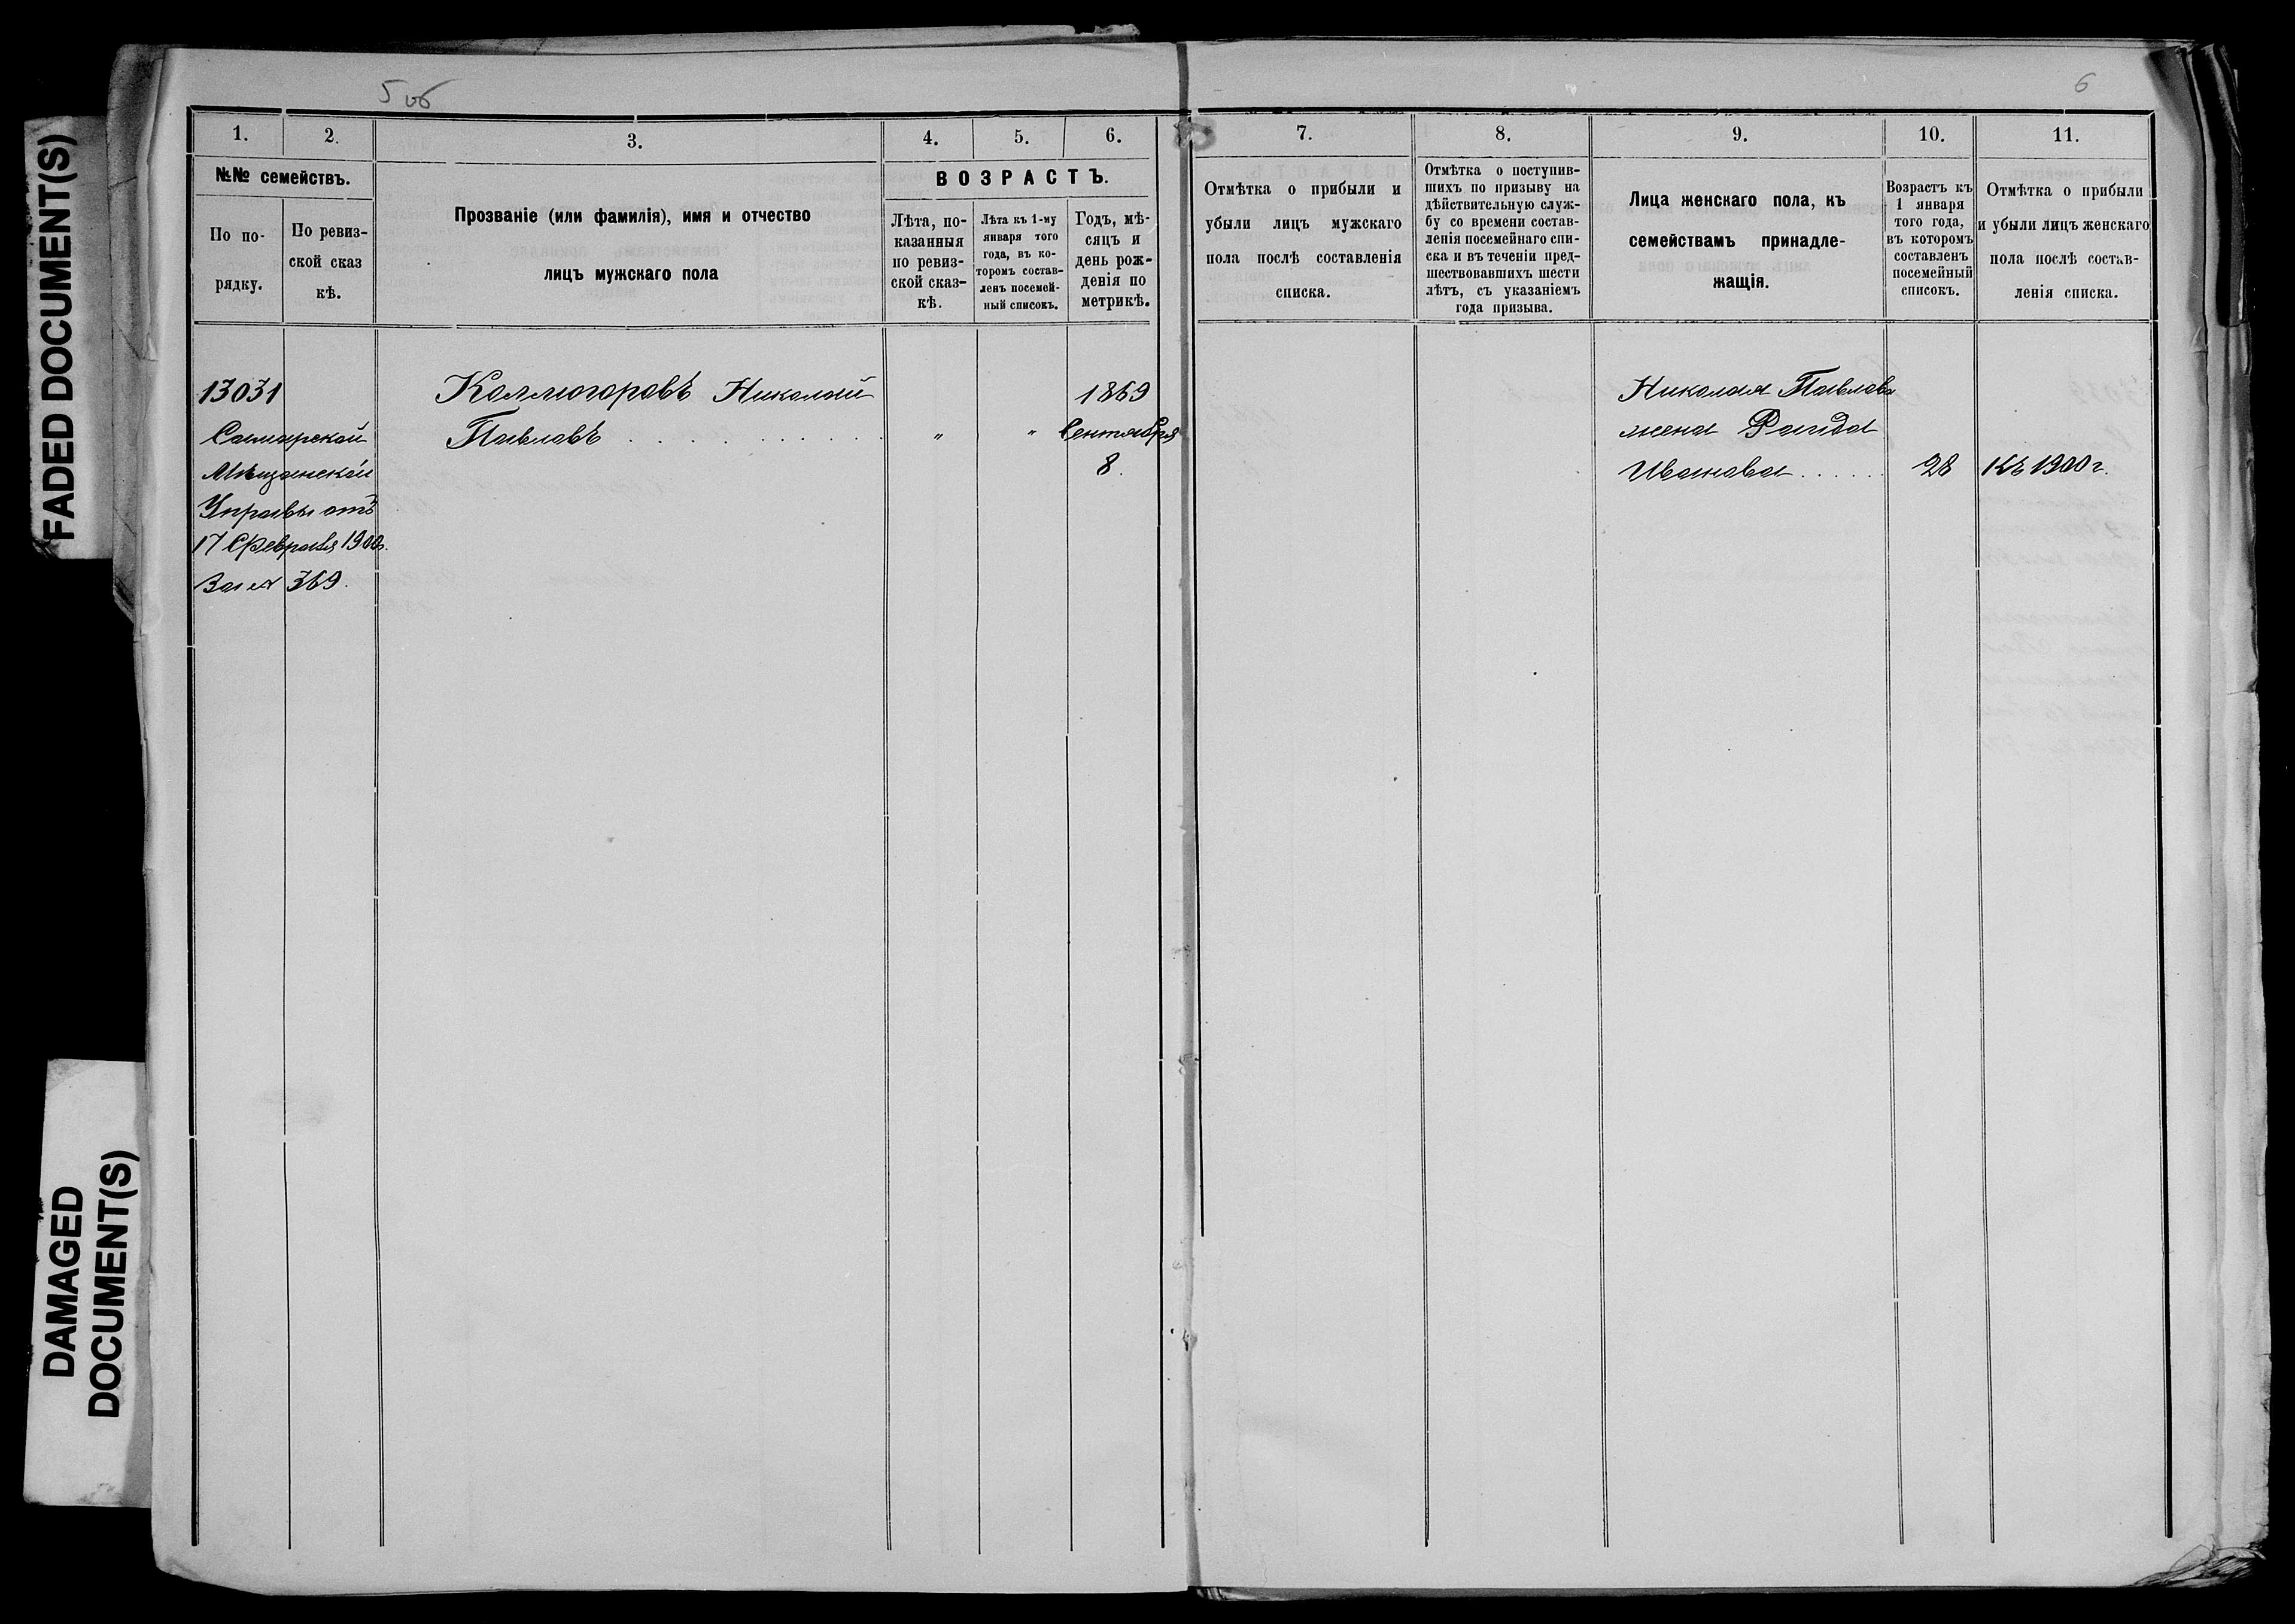 5 об
6
1.
2.
3.
4.
5.
6.
7.
8.
9.
10.
11.
№№ семействъ.
По по-
рядку.
По ревиз-
ской сказ
кѣ.
Прозваніе (или фамилія), имя и отчество
лицъ мужскаго пола
ВОЗРАСТЪ.
Лѣта, по-
казанныя
по ревиз-
ской сказ-
кѣ.
Лѣта къ 1-му
января того
года, въ ко-
торомъ состав-
ленъ посемей-
ный списокъ.
Годъ, мѣ-
сяцъ и
день рож-
денія по
метрикѣ.
Отмѣтка о прибыли и
убыли лицъ мужскаго
пола послѣ составленія
списка.
Отмѣтка о поступив-
шихъ по призыву на
дѣйствительную служ-
бу со времени состав-
ленія посемейнаго спи-
ска и въ теченіи пред-
шествовавшихъ шести
лѣтъ, съ указаніемъ
года призыва.
Лица женскаго пола, къ
семействамъ принадле-
жащія.
Возрастъ къ
1 января
того года,
въ которомъ
составленъ
посемейный
списокъ.
Отмѣтка о прибыли
и убыли лицъ женскаго
пола послѣ состав-
ленія списка.
13031
Самарской
Мѣщанской
Управы отъ
17 Февраля 1900г.
За № 369.
Колмогоровъ Николай
Павловъ . . . . . . . . . . . .
"
"
1869
Сентября
8.
Николая Павлова
жена
Иванова . . . . .
28
Къ 1900 г.
FADED DOCUMENT(S)
DAMAGED
DOCUMENT(S)